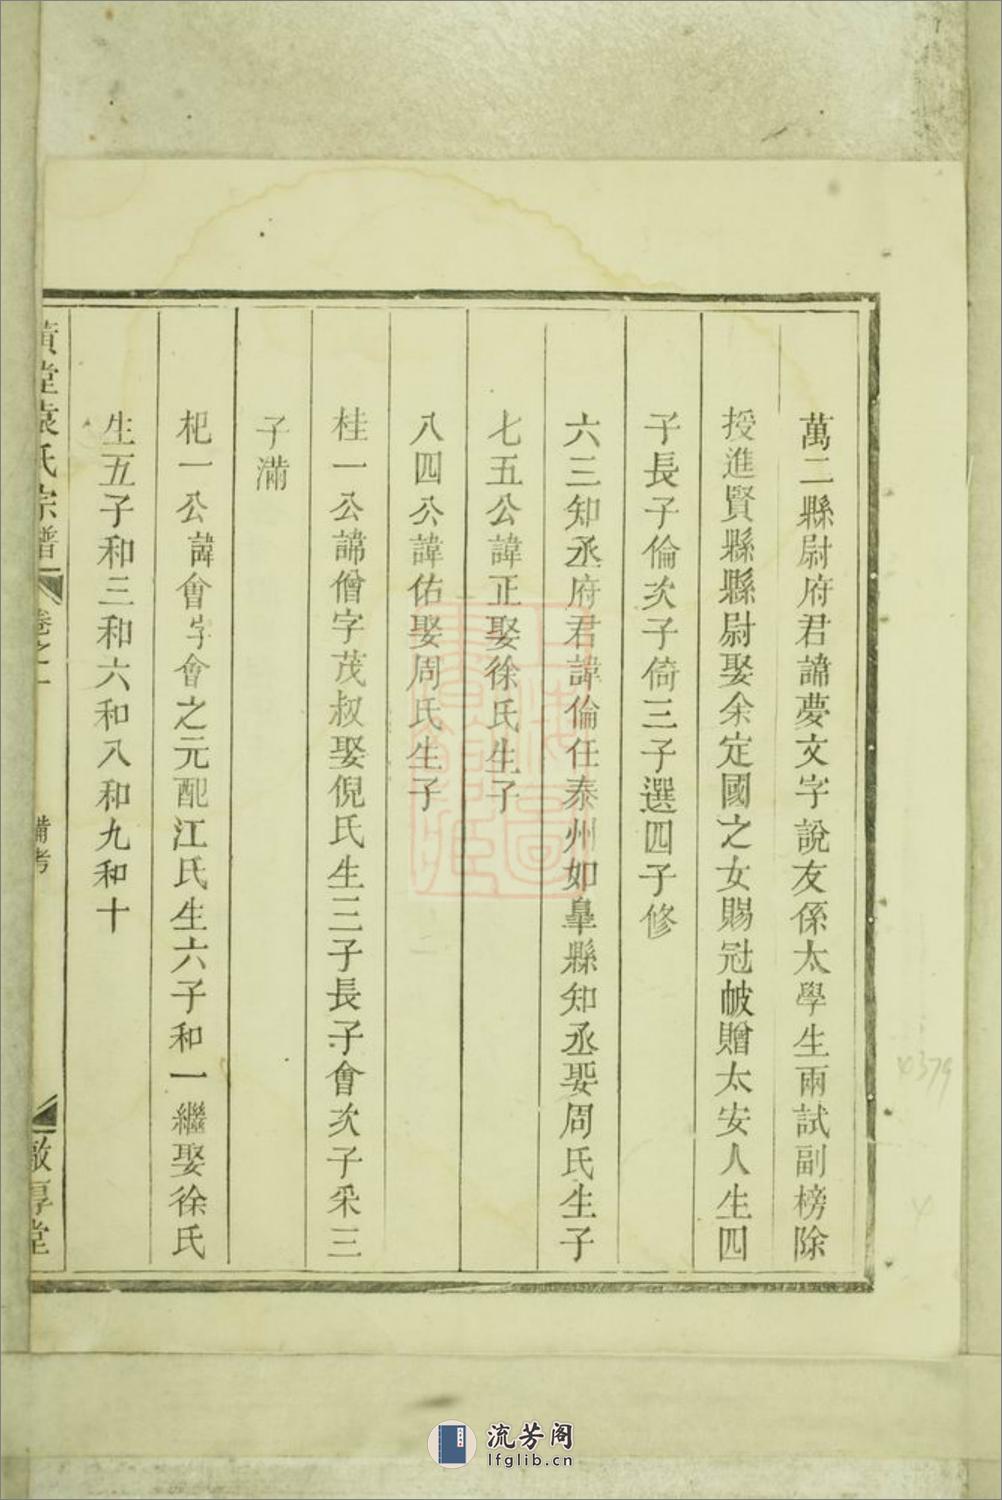 萬二縣尉府君諱夢文字說友係太學生兩試副榜除
授進賢縣縣尉娶余定國之女賜冠帔贈太安人生四
子長子倫次子倚三子選四子修
六三知丞府君諱倫任泰州如臯縣知丞娶周氏生子
七五公諱正娶徐氏生子
八四公諱佑娶周氏生子
桂一公諱僧字茂叔娶倪氏生三子長子會次子采三
子滿
杞一公諱會字會之元配江氏生六子和一繼娶徐氏
生五子和三和六和八和九和十
黃堂袁氏宗譜
卷之一
備考
敦厚堂
4379
流芳阁
lfglib.cn